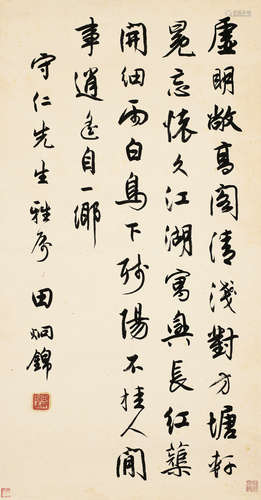 虛明敞高閣清淺對方塘軒
冕忘懷久江湖寓興長紅蕖
開細雨白鳥下殘陽不挂人間
事逍遙自一鄉
守仁先生雅屬 田炯錦